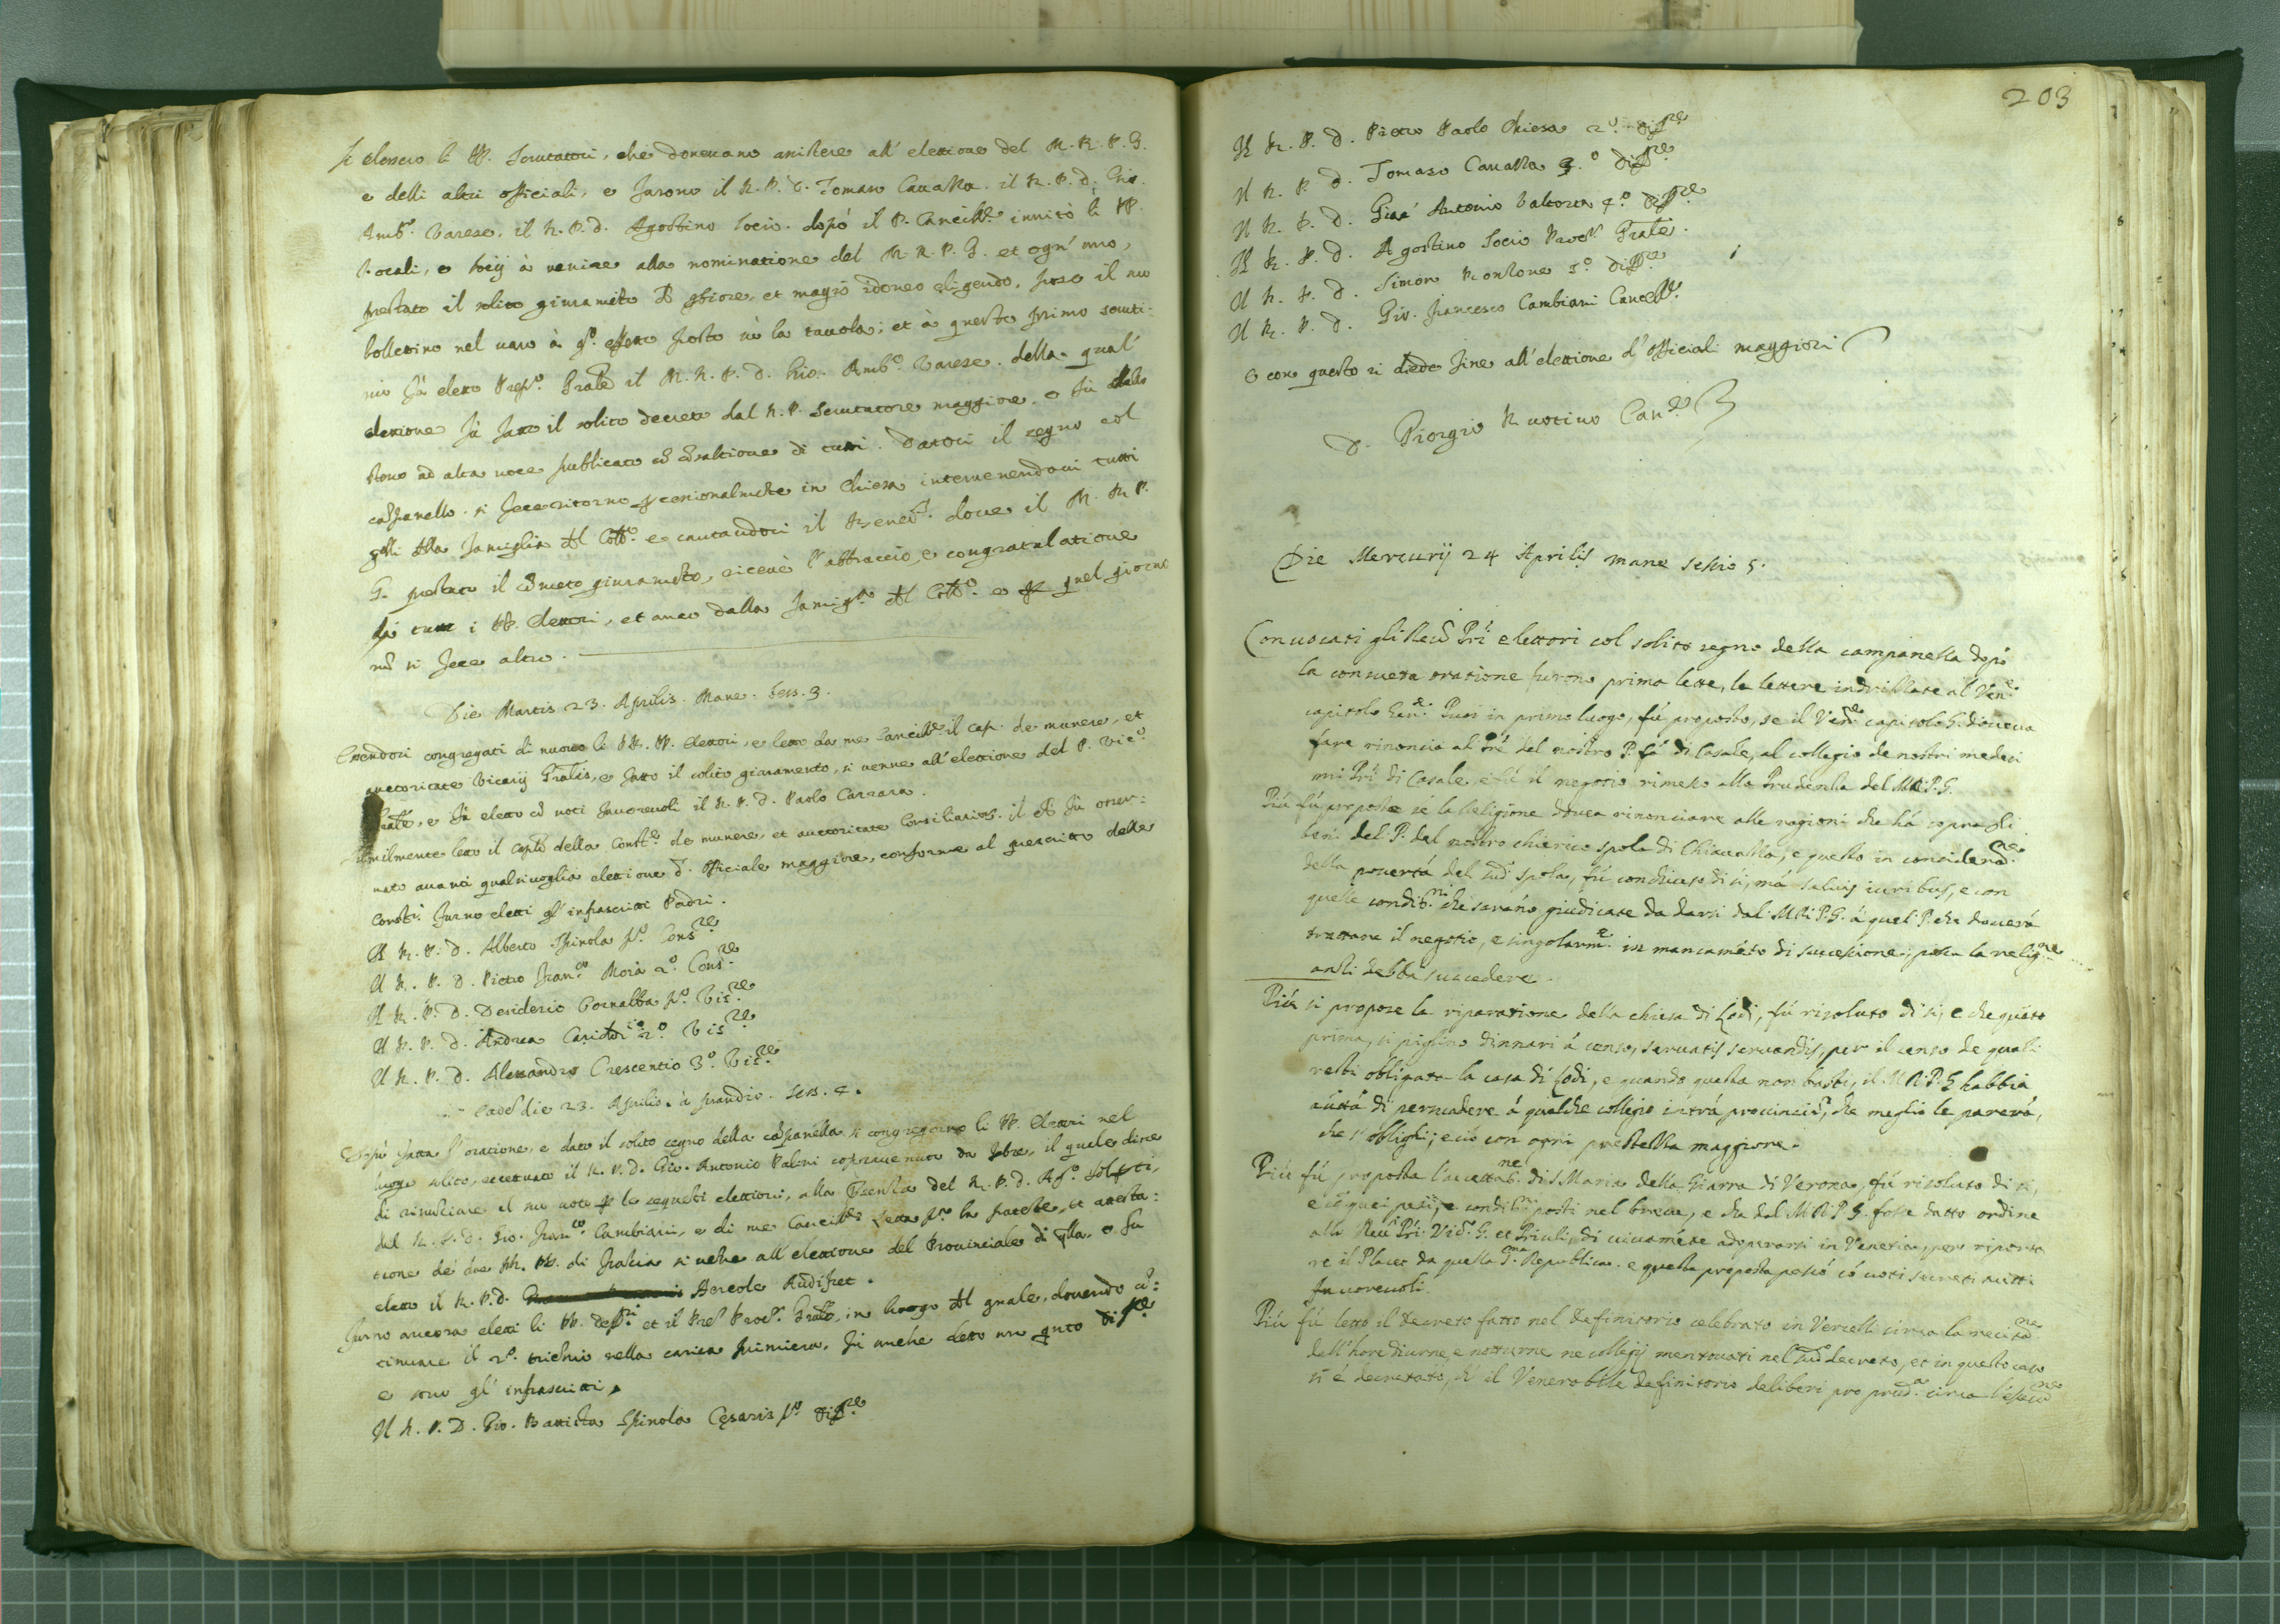 si elessero li PP. Scrutatori, che doueuano assistere all' elettione del M. R. P. G.
e delli altri officiali, e furono il R. P. D. Tomaso Cauazza. il R. P. D. Gio.
Amb.º Varese. il R. P. D. Agostino Socio. dopò il P. Cancill.e inuitò li PP.
Vocali, e Socij à uenire alla nominatione del M. R. P. G. et ogn' uno,
prestato il solito giuramẽto et magis idoneo eligendo, pose il suo
bollettino nel uaso à q.º effetto posto sù la tauola; et à questo primo scruti-
nio fù eletto Prep.º Gñale il M. R. P. D. Gio. Amb.º Varese. della qual'
elettione fù fatto il solito decreto dal R. P. Scrutatore maggiore, e fù dallo
stesso ad alta uoce publicato di tutti. Datosi il segno col
cãpanello. si fece ritorno in Chiesa interuenendoui tutti
qlli dlla famiglia dl Coll.º e cantandosi il doue il M. R. P.
G. prestato il giuramẽto, riceuè l' abbraccio, e congratulatione
da tutti i PP. Elettori, et anco dalla famig.a dl Coll.º e quel giorno
nõ si fece altro.
Die Martis 23. Aprilis. Mane. Sess. 3.
Essendosi congregati di nuouo li RR. PP. Elettori, e letto da me Cancill.e il cap. de munere, et
auctoritate Vicarij Gñalis, e fatto il solito giuramento, si uenne all' elettione del P. Vic.º
Gñale, e fù eletto cõ uoti fauoreuoli il R. P. D. Paolo Carrara.
Similmente letto il della Const.e de munere, et auctoritate Consiliarior. il fù osser-
uato auanti qualsiuoglia elettione d' Officiale maggiore, conforme al prescritto delle
Const.i furno eletti gl' infrascritti Padri.
Il R. P. D. Alberto Spinola p.º Cons.re
Il R. P. D. Pietro Fran.co Moia 2.º Cons.re
Il R. P. D. Desiderio Cornalba p.º Vis.re
Il R. P. D. Andrea 2.º Vis.re
Il R. P. D. Alessandro Crescentio 3.º Vis.re
Eadẽ die 23. Aprilis. à prandio. Sess. 4.
Dopò fatta l' oratione, e dato il solito segno della cãpanella si congregorno li PP. Elettori nel
luogo solito, eccettuato il R. P. D. Gio. Antonio Palini soprauenuto da febre, il quale disse
di rinũciare il suo uoto le seguẽti elettioni, alla Psenza del R. P. D.
del R. P. D. Gio. Fran.co Cambiani, e di me Cancill.e Letta p.º la patente, et attesta-
tione de' due RR. PP. di Francia si uẽne all' elettione del Prouinciale di qlla, e fu
eletto il R. P. D. Hercole Audifret.
Furno ancora eletti li PP. Deff.ri et il Pre Proc.r Gñale, in luogo dl quale, douendo cõ-
tinuare il 2.º triẽnio nella carica primiera, fù anche eletto un qnto diff.re
e sono gl' infrascritti.
Il R. P. D. Gio. Battista Spinola Cesaris p.º diff.re
203
Il R. P. D. Pietro Paolo Chiesa 2.º diff.re
Il R. P. D. Tomaso Cauazza 3.º diff.re
Il R. P. D. Gio. Antonio Valtorta 4.º diff.re
Il R. P. D. Agostino Socio Proc.r Gñale.
Il R. P. D. Simon Ronzone 5.º diff.re
Il R. P. D. Gio. Francesco Cambiani Cancell.e
e con questo si diede fine all' elettione d' officiali maggiori
D. Giorgio Ruotino Can.e
Die Mercurij 24 Aprilis mane sessio 5.
Conuocati gli Reu.di Pri elettori col solito segno della campanella dopò
la consueta oratione furono prima lette, le lettere indrizzate al Ven.e
capitolo Gen.e Puoi in primo luogo, fù proposto, se il Ven.e capitolo G. doueua
fare rinoncia al Pré del nostro P. fà di Casale, al collegio de nostri medesi
mi Pri di Casale, e fù il negotio rimesso alla Prudenza del M. R. P. G.
Più fù proposto se la Religione douea rinonciare alle ragioni che hà sopra gli
beni del P. del nostro chierico Spola di Chiauazza, e questo in consideraõ.ne
della pouertà del sud.º Spola, fù conchiuso di sì, mà saluis iuribus, e con
quelle condit.ni che sarãno giudicate da darsi dal M. R. P. G. à quel P. che douerà
trattare il negotio, e singolarm.te in mancamẽto di successione, possa la relig.ne
anzi debba succedere.
Più si propose la riparatione della chiesa di Lodi, fù risoluto di sì, e che quãto
prima, si piglino dinnari à censo, seruatis seruandis, per il censo de quali
resti obligata la casa di Lodi, e quando questa non basti, il M. R. P. G habbia
autt.à di persuadere à qualche collegio intrà prouinciã, che meglio le parerà,
che s' oblighi; e ciò con ogni prestezza maggiore.
Più fù proposta l'accettaõ.ne di S. Maria della Giarra di Verona, fù risoluto di sì,
e cõ quei pesi, e condit.ni posti nel breue, e che dal M. R. P. G. fosse datto ordine
alli Reu.di Pri Vic.º G. et Priuli, di uiuamẽte adoperarsi in Venetia, per riporta
re il Placet da quella S.ma Republica. e questa proposta passò cõ uoti secreti tutti
fauoreuoli.
Più fù letto il decreto fatto nel definitorio celebrato in Vercelli circa la recitaõ.ne
dell' hore diurne, e notturne ne collegij mentouati nel sud.º decreto, et in questo caso
si è decretato, ch' il Venerabile definitorio deliberi pro prud.a circa l'esecuõ.ne